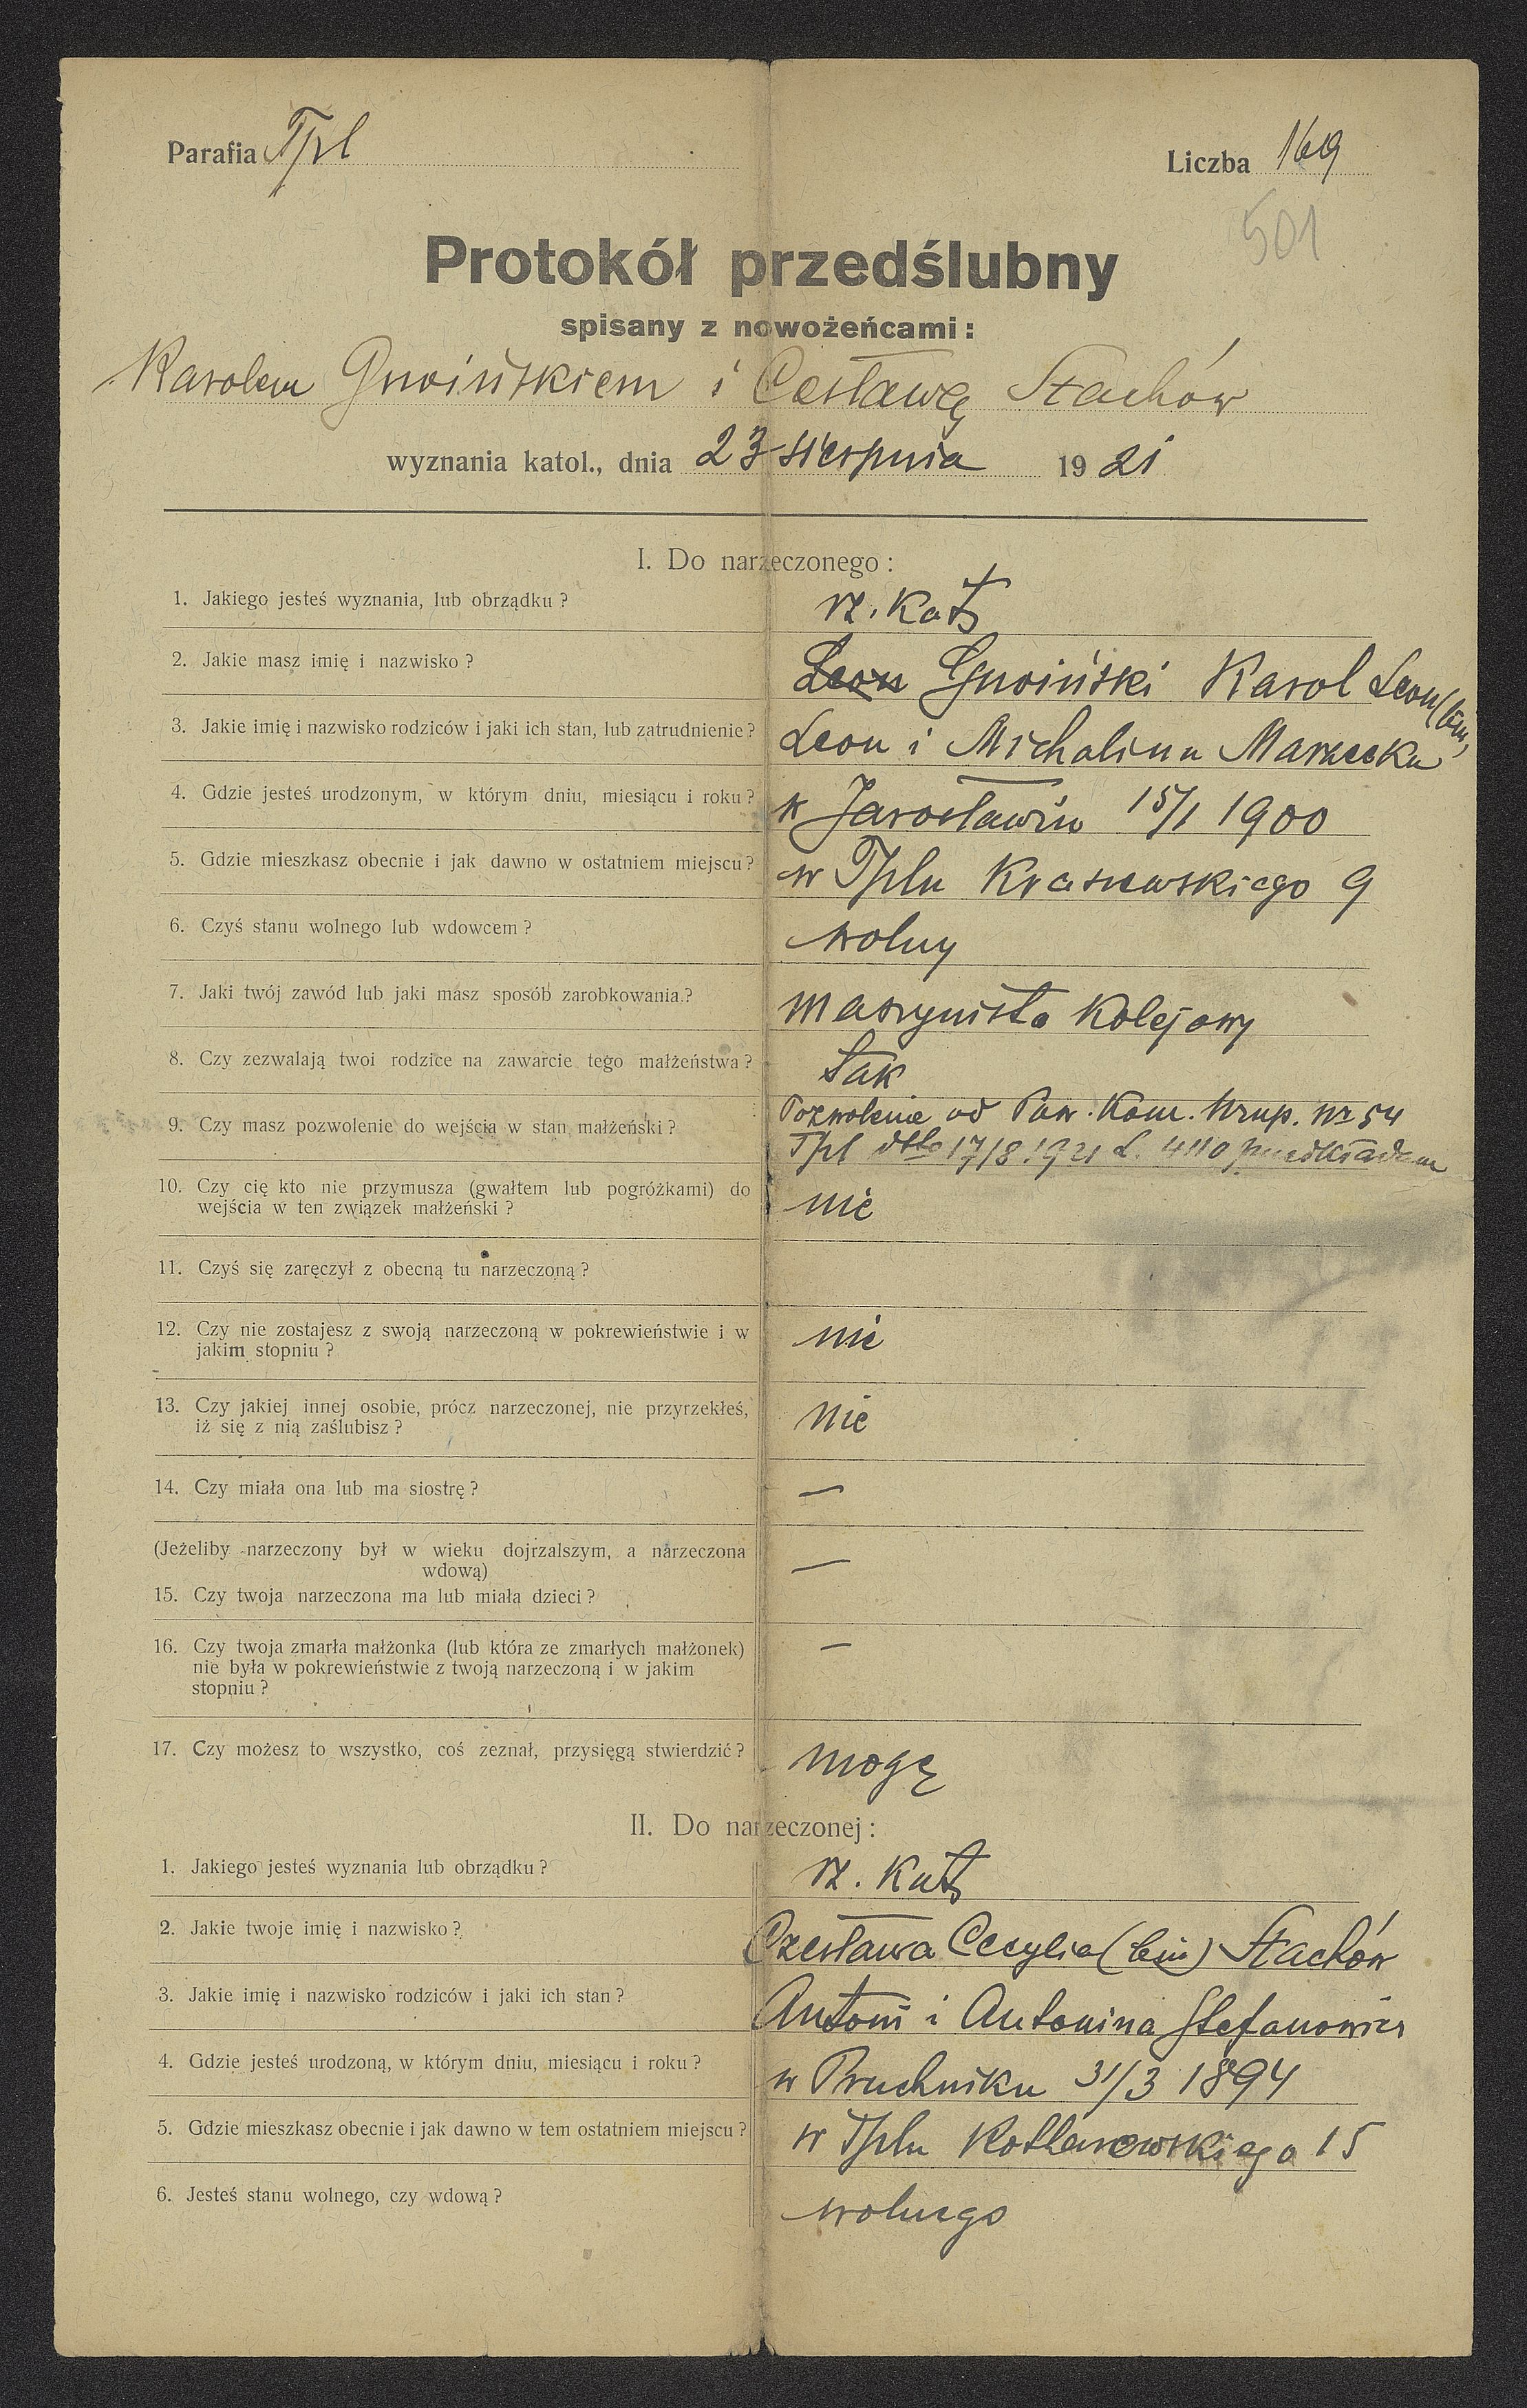 Parafia Tpl
Liczba 169
501
Protokół przedślubny
spisany z nowożeńcami:
Karolem Gnoińskiem i Cesławą Stachów
wyznania katol., dnia 23 sierpnia 1921
I. Do narzeczonego:
1. Jakiego jesteś wyznania, lub obrządku? rz. kat
2. Jakie masz imię i nazwisko? Leon Gnoiński Karol Leon (bin)
3. Jakie imię i nazwisko rodziców i jaki ich stan, lub zatrudnienie? Leon i Michalina
4. Gdzie jesteś urodzonym, w którym dniu, miesiącu i roku? w Jarosławiu 15/1 1900
5. Gdzie mieszkasz obecnie i jak dawno w ostatniem miejscu? w Tplu Kraszewskiego 9
6. Czyś stanu wolnego lub wdowcem? wolny
7. Jaki twój zawód lub jaki masz sposób zarobkowania? maszynista kolejowy
8. Czy zezwalają twoi rodzice na zawarcie tego małżeństwa? tak
9. Czy masz pozwolenie do wejścia w stan małżeński? Pozwolenie od Pow. Kom. Uzup. Nr 54
Tpl dtto 17/8 1921 L. 4110 przedkładam
10. Czy cię kto nie przymusza (gwałtem lub pogróżkami) do nie
wejścia w ten związek małżeński?
11. Czyś się zaręczył z obecną tu narzeczoną?
12. Czy nie zostajesz z swoją narzeczoną w pokrewieństwie i w nie
jakim stopniu?
13. Czy jakiej innej osobie, prócz narzeczonej, nie przyrzekłeś, nie
iż się z nią zaślubisz?
14. Czy miała ona lub ma siostrę? —
(Jeżeliby narzeczony był w wieku dojrzalszym, a narzeczona —
wdową)
15. Czy twoja narzeczona ma lub miała dzieci?
16. Czy twoja zmarła małżonka (lub która ze zmarłych małżonek) —
nie była w pokrewieństwie z twoją narzeczoną i w jakim
stopniu?
17. Czy możesz to wszystko, coś zeznał, przysięgą stwierdzić? mogę
II. Do narzeczonej:
1. Jakiego jesteś wyznania lub obrządku? rz. kat
2. Jakie twoje imię i nazwisko? Czesława Cecylia (bin) Stachów
3. Jakie imię i nazwisko rodziców i jaki ich stan? Antoni i Antonina Stefanowicz
4. Gdzie jesteś urodzoną, w którym dniu, miesiącu i roku? w Pruchniku 31/3 1894
5. Gdzie mieszkasz obecnie i jak dawno w tem ostatniem miejscu? w Tplu 15
6. Jesteś stanu wolnego, czy wdową? wolnego